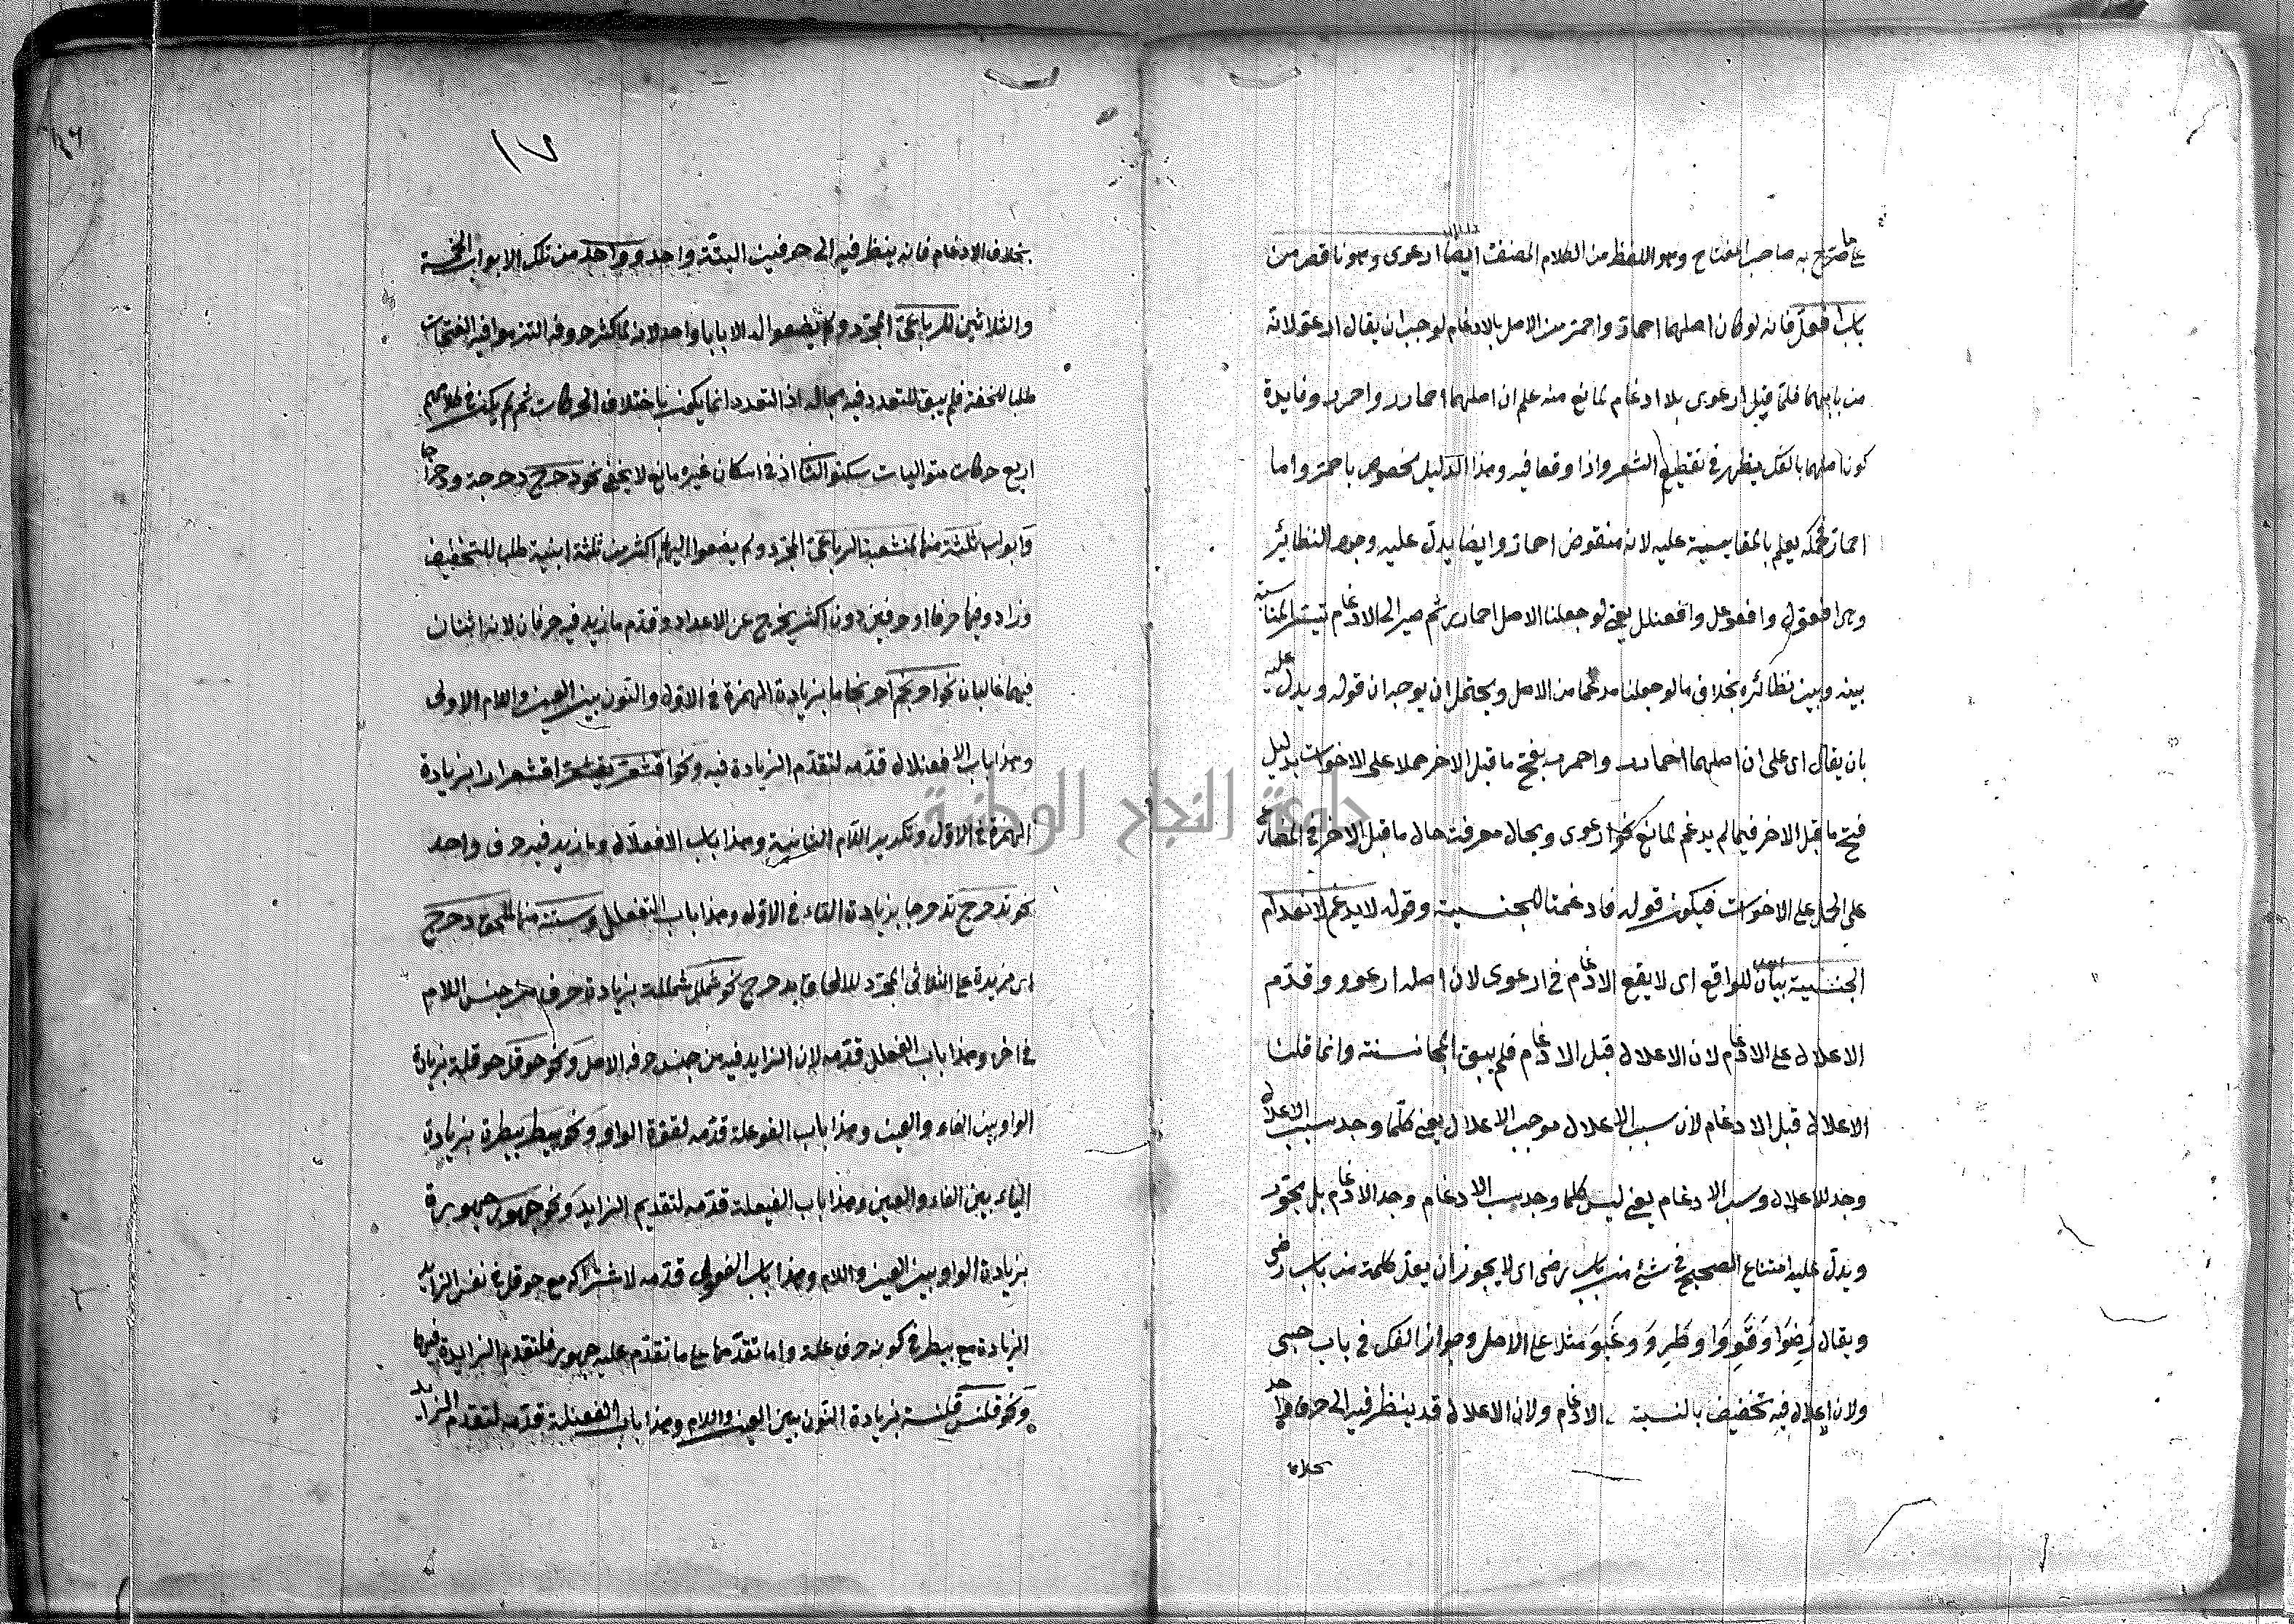 على ما صرح به صاحب المفتاح وهو اللفظ من الكلام المصنف ايضا ارعوى وهو ناقص من
باب افعل فانه لو كان اصلهما احمار واحمر من الاصل بالادغام لوجب ان يقال ارعو لانه
من بابهما فلما قيل ارعوى بلا ادغام لمانع منه علم ان اصلهما احمارر واحمرر وفايدة
كون اصلهما بالفك يظهر في تقطيع الشعر واذا وقعا فيه وهذا الدليل مخصوص باحمر واما
احمار فحكمه يعلم بالمقايسة عليه لانه منقوض احمار وايضا يدل عليه وجود النظائر
وهي افعول وافعوعل وافعنلل يعني لو جعلنا الاصل احمارر ثم صير الى الادغام تيسر المناسبة
بينه وبين نظائره بخلاف ما لو جعلنا مدغما من الاصل ويحتمل ان يوجه ان قوله ويدل عليه
بان يقال اي على ان اصلهما احمارر واحمرر بفتح ما قبل الاخر حملا على الاخوات بدليل
فتح ما قبل الاخر فيما لم يدغم لمانع نحو ارعوى ويحال معرفة حال ما قبل الاخر في المضارع
على الحمل على الاخوات فيكون قوله فادغمتا للجنسية وقوله لا يدغم لانعدام
الجنسية بيان للواقع اي لا يقع الادغام في ارعوى لان اصله ارعوو وقدم
الاعلال على الادغام لان الاعلال قبل الادغام فلم يبق المجانسة وانما قلنا
الاعلال قبل الادغام لان سبب الاعلال موجب الاعلال يعني كلما وجد سبب الاعلال
وجد الاعلال وسبب الادغام يعني ليس كلما وجد سبب الادغام وجد الادغام بل يجوز
ويدل عليه امتناع الصحيح في شئ من باب رضى اي لا يجوز ان يعد كلمة من باب رضى
ويقال رَضِوَا وَقَوِوَا وطَرِوَ وغَبِوَ مثلا على الاصل وجواز الفك في باب حيى
ولان اعلال فيه تخفيف بالنسبة الادغام ولان الاعلال قد ينظر فيه الى حرف واحد
بخلاف
١٧
بخلاف الادغام فانه ينظر فيه الى حرفين البتة واحد وواحد من تلك الابواب الخمسة
والثلاثين للرباعي المجرد ولم يضعوا له الا بابا واحدا لانه لما كثر حروفه التزموا فيه الفتحات
طلبا للخفة فلم يبق للتعدد فيه مجال اذ التعدد انما يكون باختلاف الحركات ثم لم يكن في كلامهم
اربع حركات متواليات سكنوا الثاني اذ في اسكان غيره مانع لا يخفى نحو دحرج دحرجة ودحراجا
وابواب ثلثة منها لمنشعبة الرباعي المجرد ولم يضعوا اليها اكثر من ثلثة ابنية طلبا للتخفيف
وزادوا فيها حرفا او حرفين دون اكثر يخرج عن الاعداد وقدم ما زيد فيه حرفان لانه اثنان
فيهما غالبان نحو احرنجم احرنجاما بزيادة الهمزة في الاول والنون بين العين واللام الاولى
وهذا باب الافعنلال قدمه لتقدم الزيادة فيه ونحو اقشعر يقشعر اقشعرارا بزيادة
الهمزة في الاول وتكرير اللام الثانية وهذا باب الافعلال وما زيد فيه حرف واحد
نحو تدحرج تدحرجا بزيادة التاء في الاول وهذا باب التفعلل وستة منها للملحق دحرج
اي مزيدة على الثلاثي المجرد للالحاق بدحرج نحو شملل شمللة بزيادة حرف من جنس اللام
في اخره وهذا باب الفعلل قدمه لان الزايد فيه من جنس حرفه الاصل ونحو حوقل حوقلة بزيادة
الواو بين الفاء والعين وهذا باب الفوعلة قدمه لقوة الواو ونحو بيطر بيطرة بزيادة
الياء بين الفاء والعين وهذا باب الفيعلة قدمه لتقديم الزايد ونحو جهور جهورة
بزيادة الواو بين العين واللام وهذا باب الفعولة قدمه لاشتراكه مع حوقل في نفس الزايد
الزيادة مع بيطر في كونه حرف علة واما تقدمهما على ما تقدم عليه جهور فلتقدم الزايدة فيهما
ونحو قلنس قلنسة بزيادة النون بين العين واللام وهذا باب الفعنلة قدمه لتقدم الزايد
جامعة النجاح الوطنية